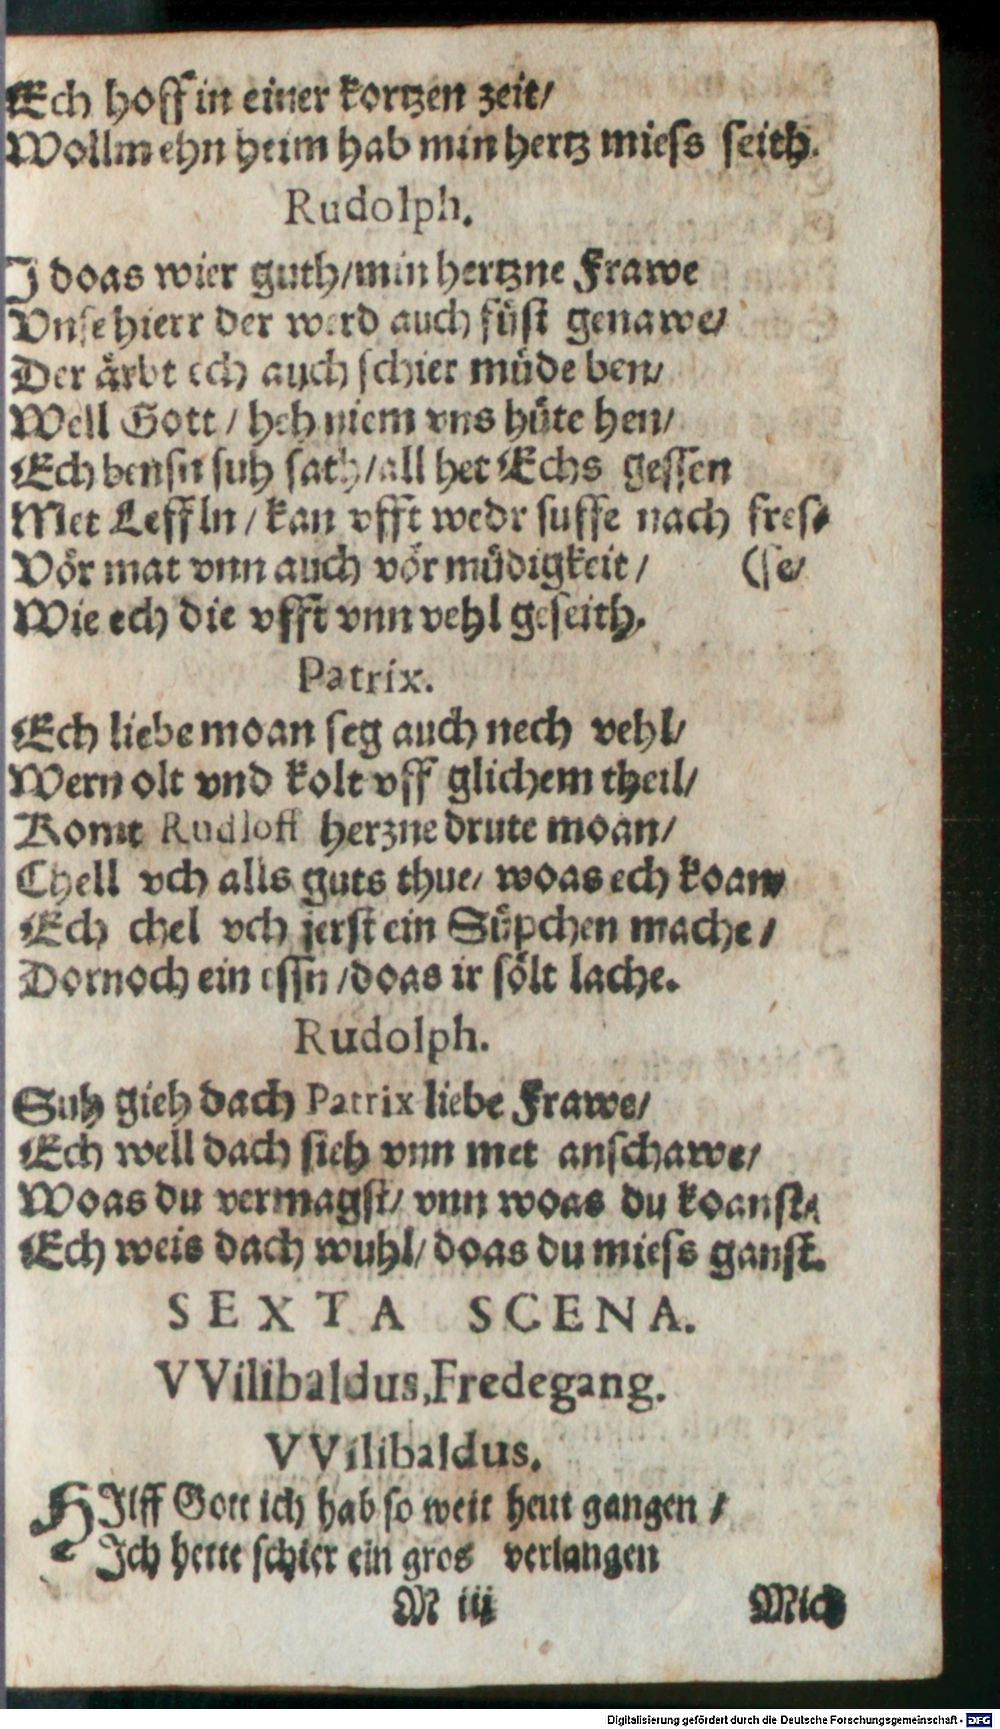 Ech hoff in einer kortzen zeit/
Wollm ehn heim hab min hertz miess seith.
Rudolph.
J doas wier guth/min hertzne Frawe
Vnse hierr der werd auch füst genawe/
Der ärbt ech auch schier müde ben/
Well Gott / heh niem vns hüte hen/
Ech bensn suh sath/all het Echs gessen
Met Leffln / kan vfft wedr suffe nach fres-
Vör mat vnn auch vör müdigkeit / (se/
Wie ech die vfft vnn vehl geseith.
Patrix.
Ech liebe moan seg auch nech vehl/
Wern olt vnd kolt vff glichem theil/
Komt Rudloff herzne drute moan/
Chell vch alls guts thue/ woas ech koan
Ech chel vch jerst ein Süpchen mache /
Dornoch ein essn /doas ir sölt lache.
Rudolph.
Suh gieh dach Patrix liebe Frawe/
Ech well dach sieh vnn met anschawe/
Woas du vermagst/ vnn woas du koanst/
Ech weis dach wuhl/ doas du miess ganst.
SEXTA SCENA.
VVilibaldus, Fredegang.
VVilibaldus.
HIlff Gott ich hab so weit heut gangen /
Ich hette schier ein gros verlangen
M iij Mich
Digitalisierung gefördert durch die Deutsche Forschungsgemeinschaft - DFG